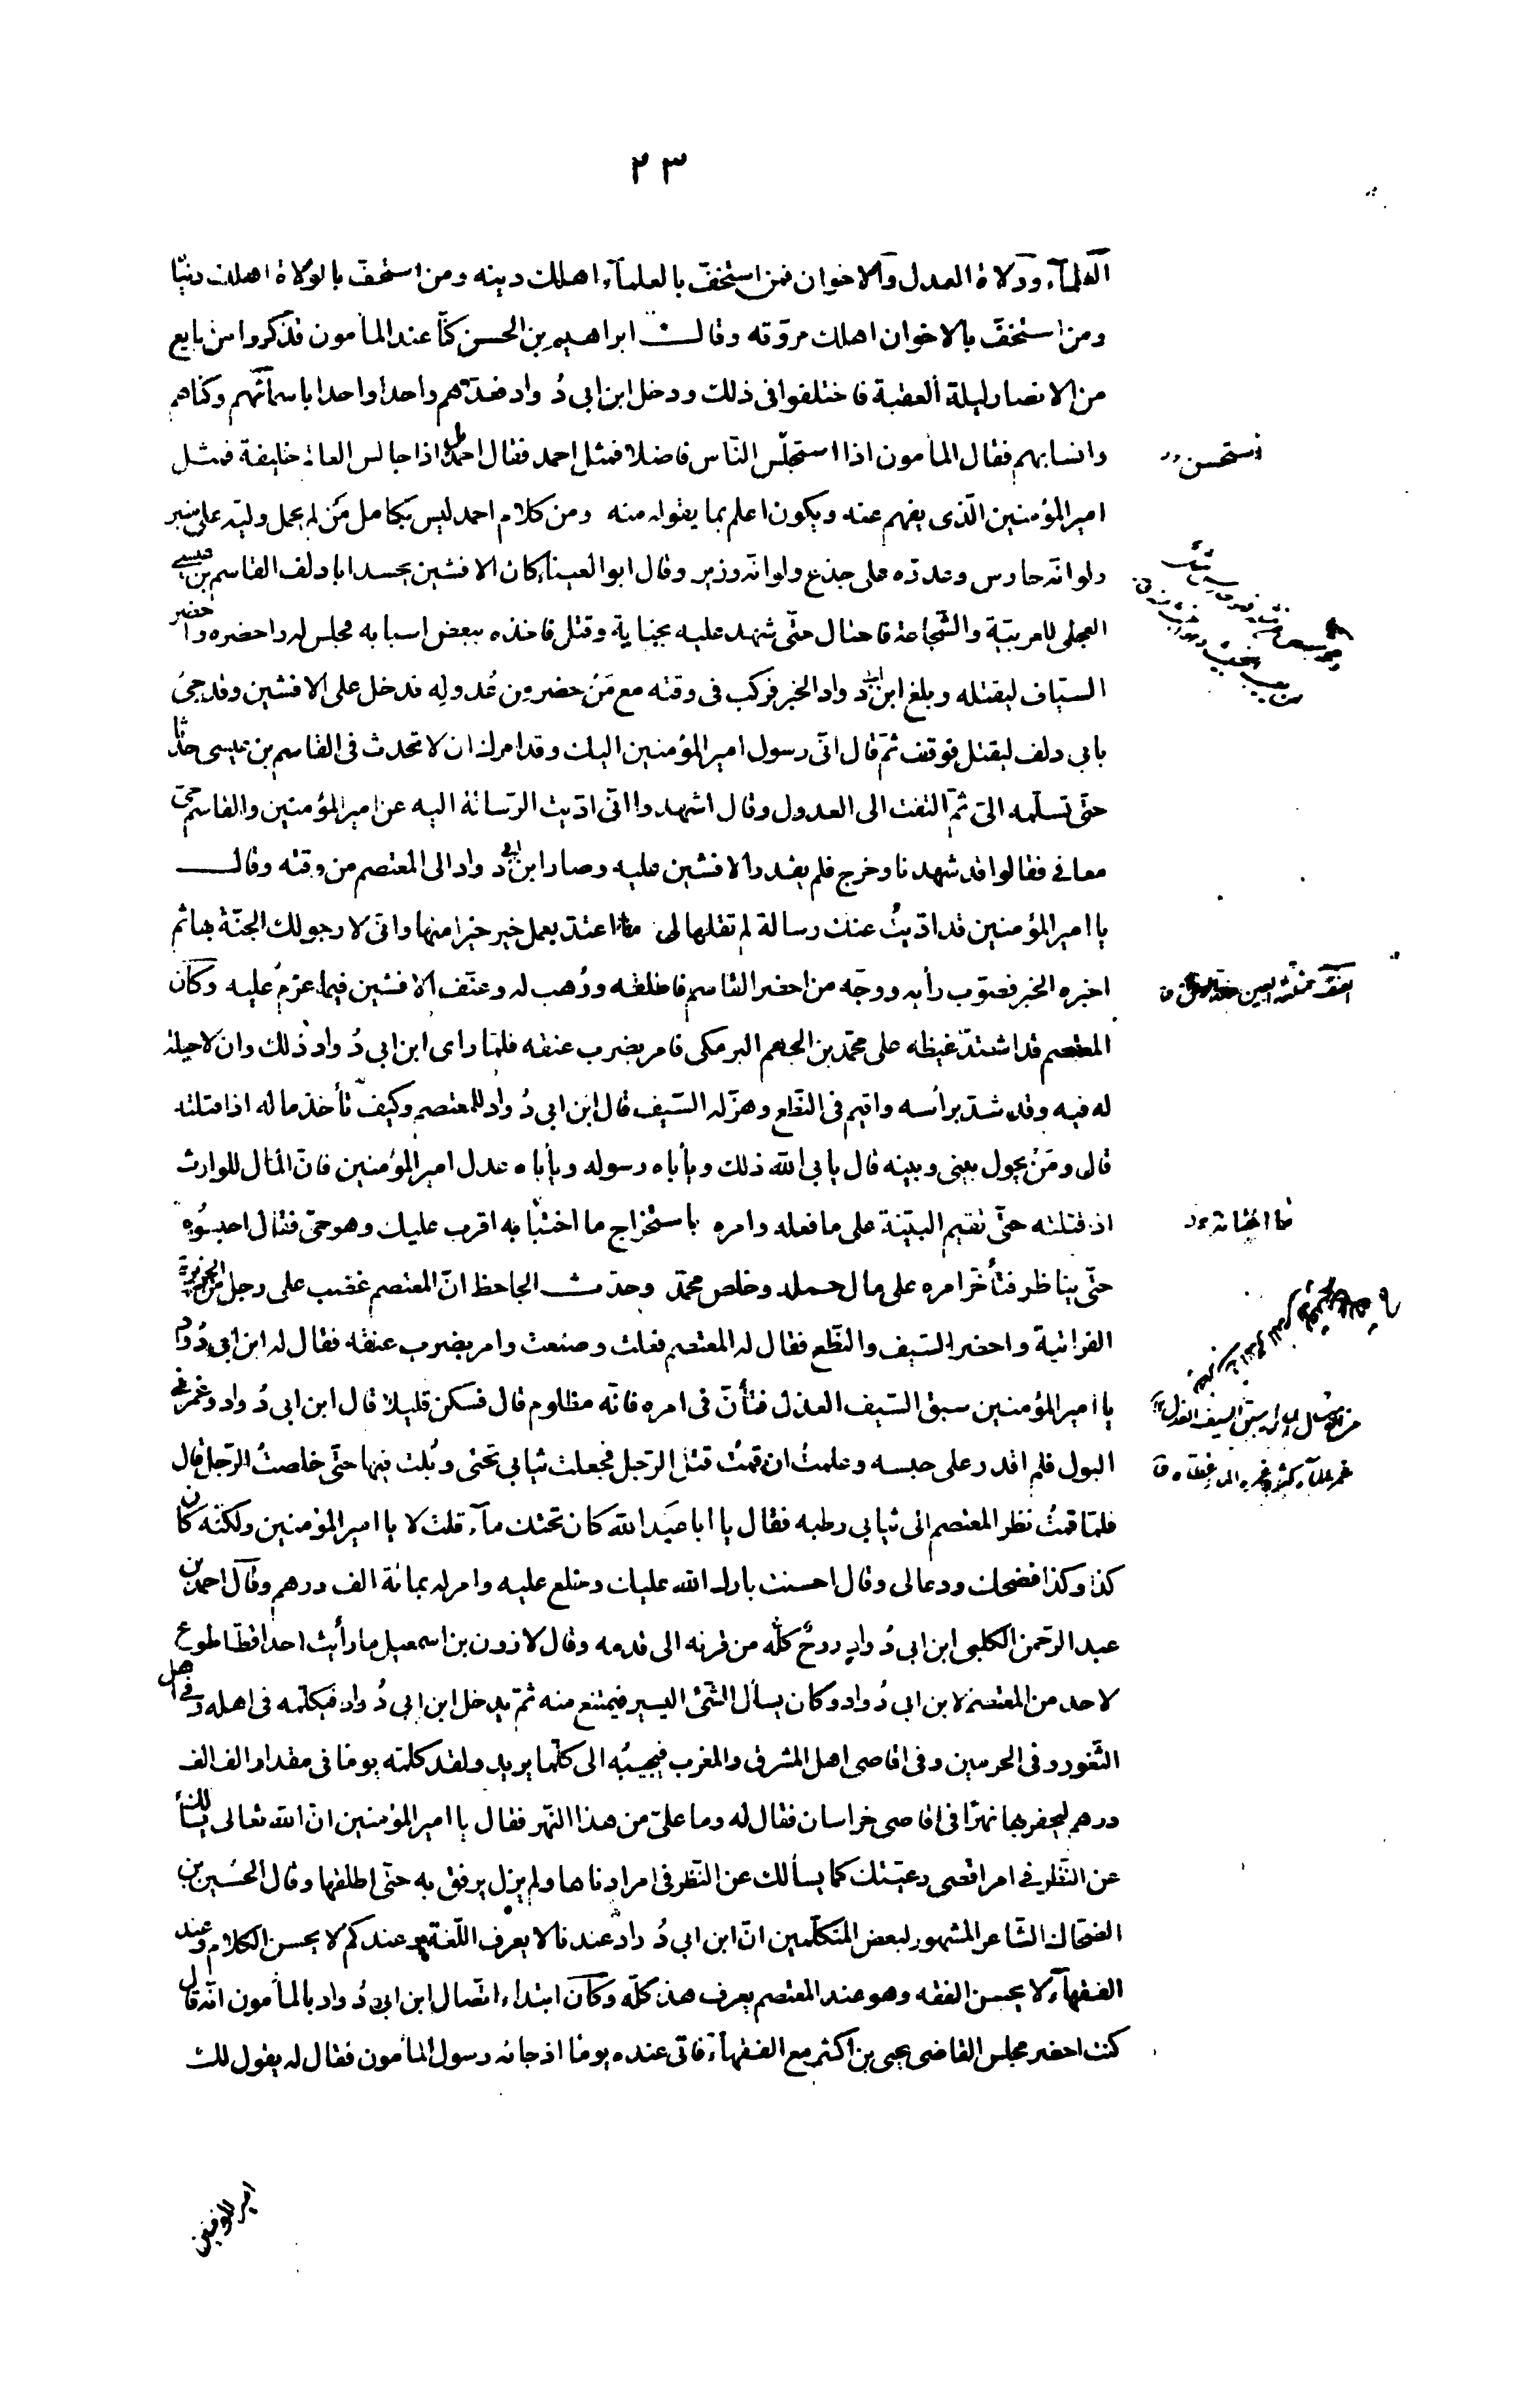 ٢٣
العلمآء وولاة العدل والاخوان فمن استخفّ بالعلمآء اهلك دينه ومن استخفّ بالولاة اهلك دنيا
ومن استخفّ بالاخوان اهلك مروّته وقالــ ابراهيم بن الحسن كنّا عند المأمون فذكروا من بايع
من الانصار ليلة العقبة فاختلفوا فى ذلك ودخل ابن ابى دُواد فعدّهم واحدا واحدا باسمآئهم وكناهم
وانسابهم فقال المأمون اذا استجلس النّاس فاضلا فمثل احمد فقال احمد بل اذا جالس العالم خليفة فمثل
امير المؤمنين الّذى يفهم عنه ويكون اعلم بما يقوله منه ومن كلام احمد ليس بكامل مَن لم يحمل وليّه على منبر
ولو انّه حارس وعدوّه على جذع ولو انّه وزير وقال ابو العيناء كان الافشين يحسد ابا دلف القاسم بن عيسى
العجلى للعربيّة والشّجاعة فاحتال حتّى شهد عليه بجناية وقتل فاخذه ببعض اسبابه فجلس له واحضره واحضر
السيّاف ليقتله وبلغ ابن ابى دواد الخبر فركب فى وقته مع مَن حضر من عُدولِه فدخل على الافشين وقد جئ
بابى دلف ليقتل فوقف ثمّ قال انّى رسول امير المؤمنين اليك وقد امرك ان لا تحدث فى القاسم بن عيسى حدثا
حتّى تسلّمه الىّ ثمّ التفت الى العدول وقال اشهدوا انّى ادّيت الرّسالة اليه عن امير المؤمنين والقاسم حىّ
معافى فقالوا قد شهدنا وخرج فلم يقدر الافشين عليه وصار ابن ابى دواد الى المعتصم من وقته وقالــ
يا امير المؤمنين قد ادّيتُ عنك رسالة لم تقلها لى ما اعتدّ بعمل خير خيرا منها وانّى لارجو لك الجنّة بها ثم
اخبره الخبر فصوّب رأيه ووجّه من احضر القاسم فاطلقه ووُهب له وعنّف الافشين فيما عزم عليه وكان
المعتصم قد اشتدّ غيظه على محمّد بن الجهم البرمكى فامر بضرب عنقه فلمّا راى ابن ابى دُواد ذلك وان لا حيلة
له فيه وقد شدّ برأسه واقيم فى النّطع وهزّ له السّيف قال ابن ابى دُواد للمعتصم وكيف تأخذ ماله اذا قتلته
قال ومَنْ يحول بينى وبينه قال يابى الله ذلك ويأباه رسوله ويأباه عدل امير المؤمنين فانّ المال للوارث
اذ قتلته حتّى تقيم البيّنة على ما فعله وامره باستخراج ما اختبا به اقرب عليك وهو حىّ فقال احبسُوه
حتّى يناظر فتأخّر امره على مال حمله وخلص محمّد وحدّث الجاحظ انّ المعتصم غضب على رجل من الجزيرة
الفراتية واحضر السّيف والنّطع فقال له المعتصم فعلت وصنعت وامر بضرب عنقه فقال له ابن ابى دُواد
يا امير المؤمنين سبق السّيف العذل فتأنّ فى امره فانّه مظلوم قال فسكن قليلا قال ابن ابى دُواد وغمرنى
البول فلم اقدر على حبسه وعلمتُ ان قمتُ قتل الرّجل فجعلت ثيابى تحتى وبُلت فيها حتّى خلصتُ الرّجل قال
فلمّا قمتُ نظر المعتصم الى ثيابى رطبه فقال يا ابا عبد الله كان تحتك مآء قلت لا يا امير المؤمنين ولكنّه كان
كذا وكذا فضحك ودعا لى وقال احسنت بارك الله عليك وخلع عليه وامر له بمائة الف درهم وقال احمد بن
عبد الرّحمن الكلبى ابن ابى دُواد روحٌ كلّه من قرنه الى قدمه وقال لازون بن اسمعيل ما رأيت احدا قطّ اطوع
لاحد من المعتصم لابن ابى دُواد وكان يسأل الشّئ اليسير فيمتنع منه ثمّ يدخل ابن ابى دُواد فيكلّمه فى اهله وفى اهل
الثّغور وفى الحرمين وفى اقاصى اهل المشرق والمغرب فيجيبُه الى كلّما يريد ولقد كلمته يوما فى مقدار الف الف
درهم ليحفر بها نهرًا فى اقاصى خراسان فقال له وما علىّ من هذا النّهر فقال يا امير المؤمنين انّ الله تعالى يسألك
عن النّظر فى امر اقصى رعيّتك كما يسألك عن النّظر فى امر ادناها ولم يزل يرفق به حتّى اطلقها وقال الحُسَين بن
الضحّاك الشّاعر المشهور لبعض المتكلّمين انّ ابن ابى دُواد عندنا لا يعرف اللّغة وعندكم لا يحسن الكلام وعند
الفقهآء لا يحسن الفقه وهو عند المعتصم يعرف هذا كلّه وكان ابتداء اتّصال ابن ابى دُواد بالمأمون انّه قال
كنت احضر مجلس القاضى يحيى بن اكثم مع الفقهآء فانّى عنده يوما اذ جائه رسول المأمون فقال له يقول لك
امير المؤمنين